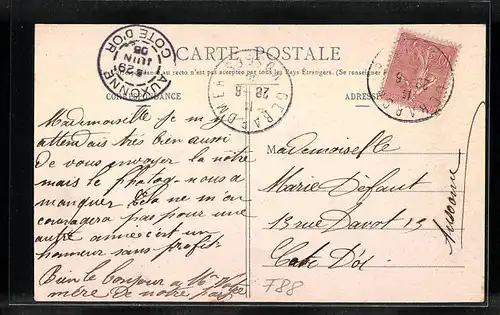 CARTE POSTALE
au recto n'est pas accepté par tous les Pays Étrangers. (Se renseigner
CORRESPONDANCE
ADRESSE
AUXONNE
COTE D'OR
29
JUIN
05
GERARDMER
28
Mademoiselle je m'y
attendais très bien aussi
de vous envoyer la nôtre
mais le photog- nous a
manquer Cela ne m'en
couragera pas pour une
autre année c'est un
honneur sans profits
Bien le bonjour a
mère de notre part
Mademoiselle
Marie Défaut
13 rue Davot 13
Cote D'or
Auxonne
F88